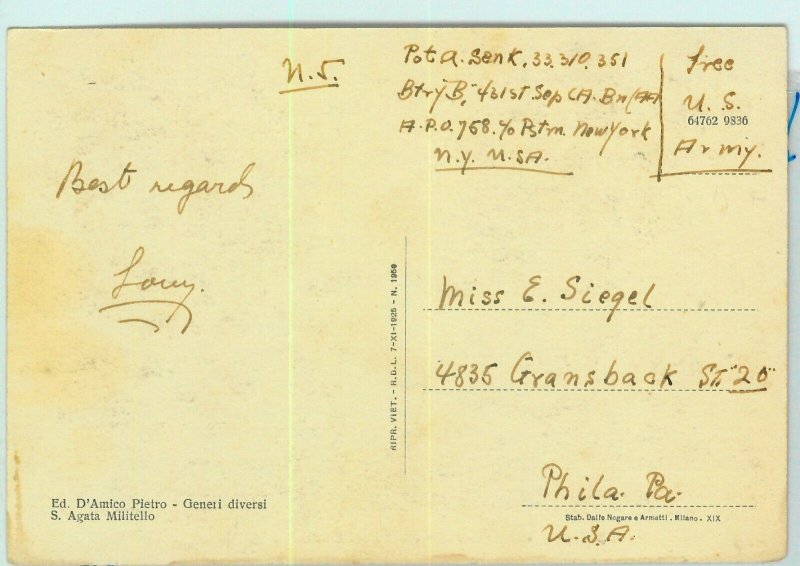 N.J.
Pvt A. Senk, 33.310.351
Btry B, 431st Sep CA. Bn (AA
A.P.O. 758. c/o Pstm. New York
N.Y. U.S.A.
Free
U. S.
64762 9836
Army.
Best regards
Miss E. Siegel
4835 Gransback St. "20"
Phila. Pa.
U.S.A.
RIPR. VIET. - R.D.L. 7-XI-1925 - N. 1950
Ed. D'Amico Pietro - Generi diversi
S. Agata Militello
Stab. Dalle Nogare e Armetti - Milano - XIX